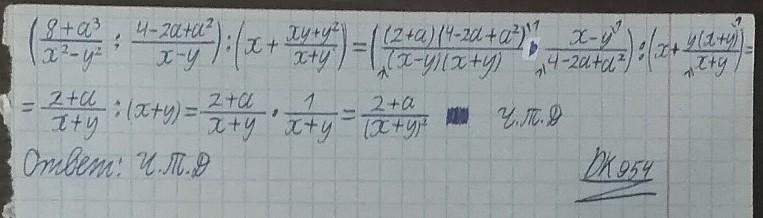 (8+a³/x²-y² : 4-2a+a²/x-y) : (x + xy+y²/x+y) = ((2+a)(4-2a+a²)/(x-y)(x+y) · x-y/4-2a+a²) : (x + y(x+y)/x+y) =
= 2+a/x+y : (x+y) = 2+a/x+y · 1/x+y = 2+a/(x+y)² Ч.Т.Д
Ответ: Ч.Т.Д DK954